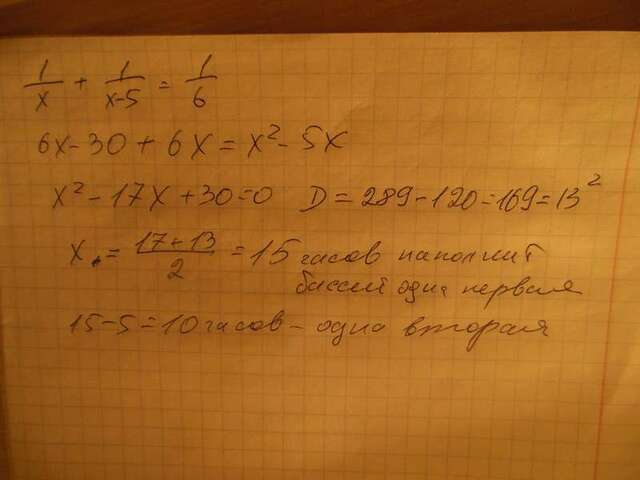 1/x + 1/(x-5) = 1/6
6x - 30 + 6x = x² - 5x
x² - 17x + 30 = 0 D = 289 - 120 = 169 = 13²
x₁ = (17+13)/2 = 15 часов наполнит
бассейн одна первая
15 - 5 = 10 часов - одна вторая